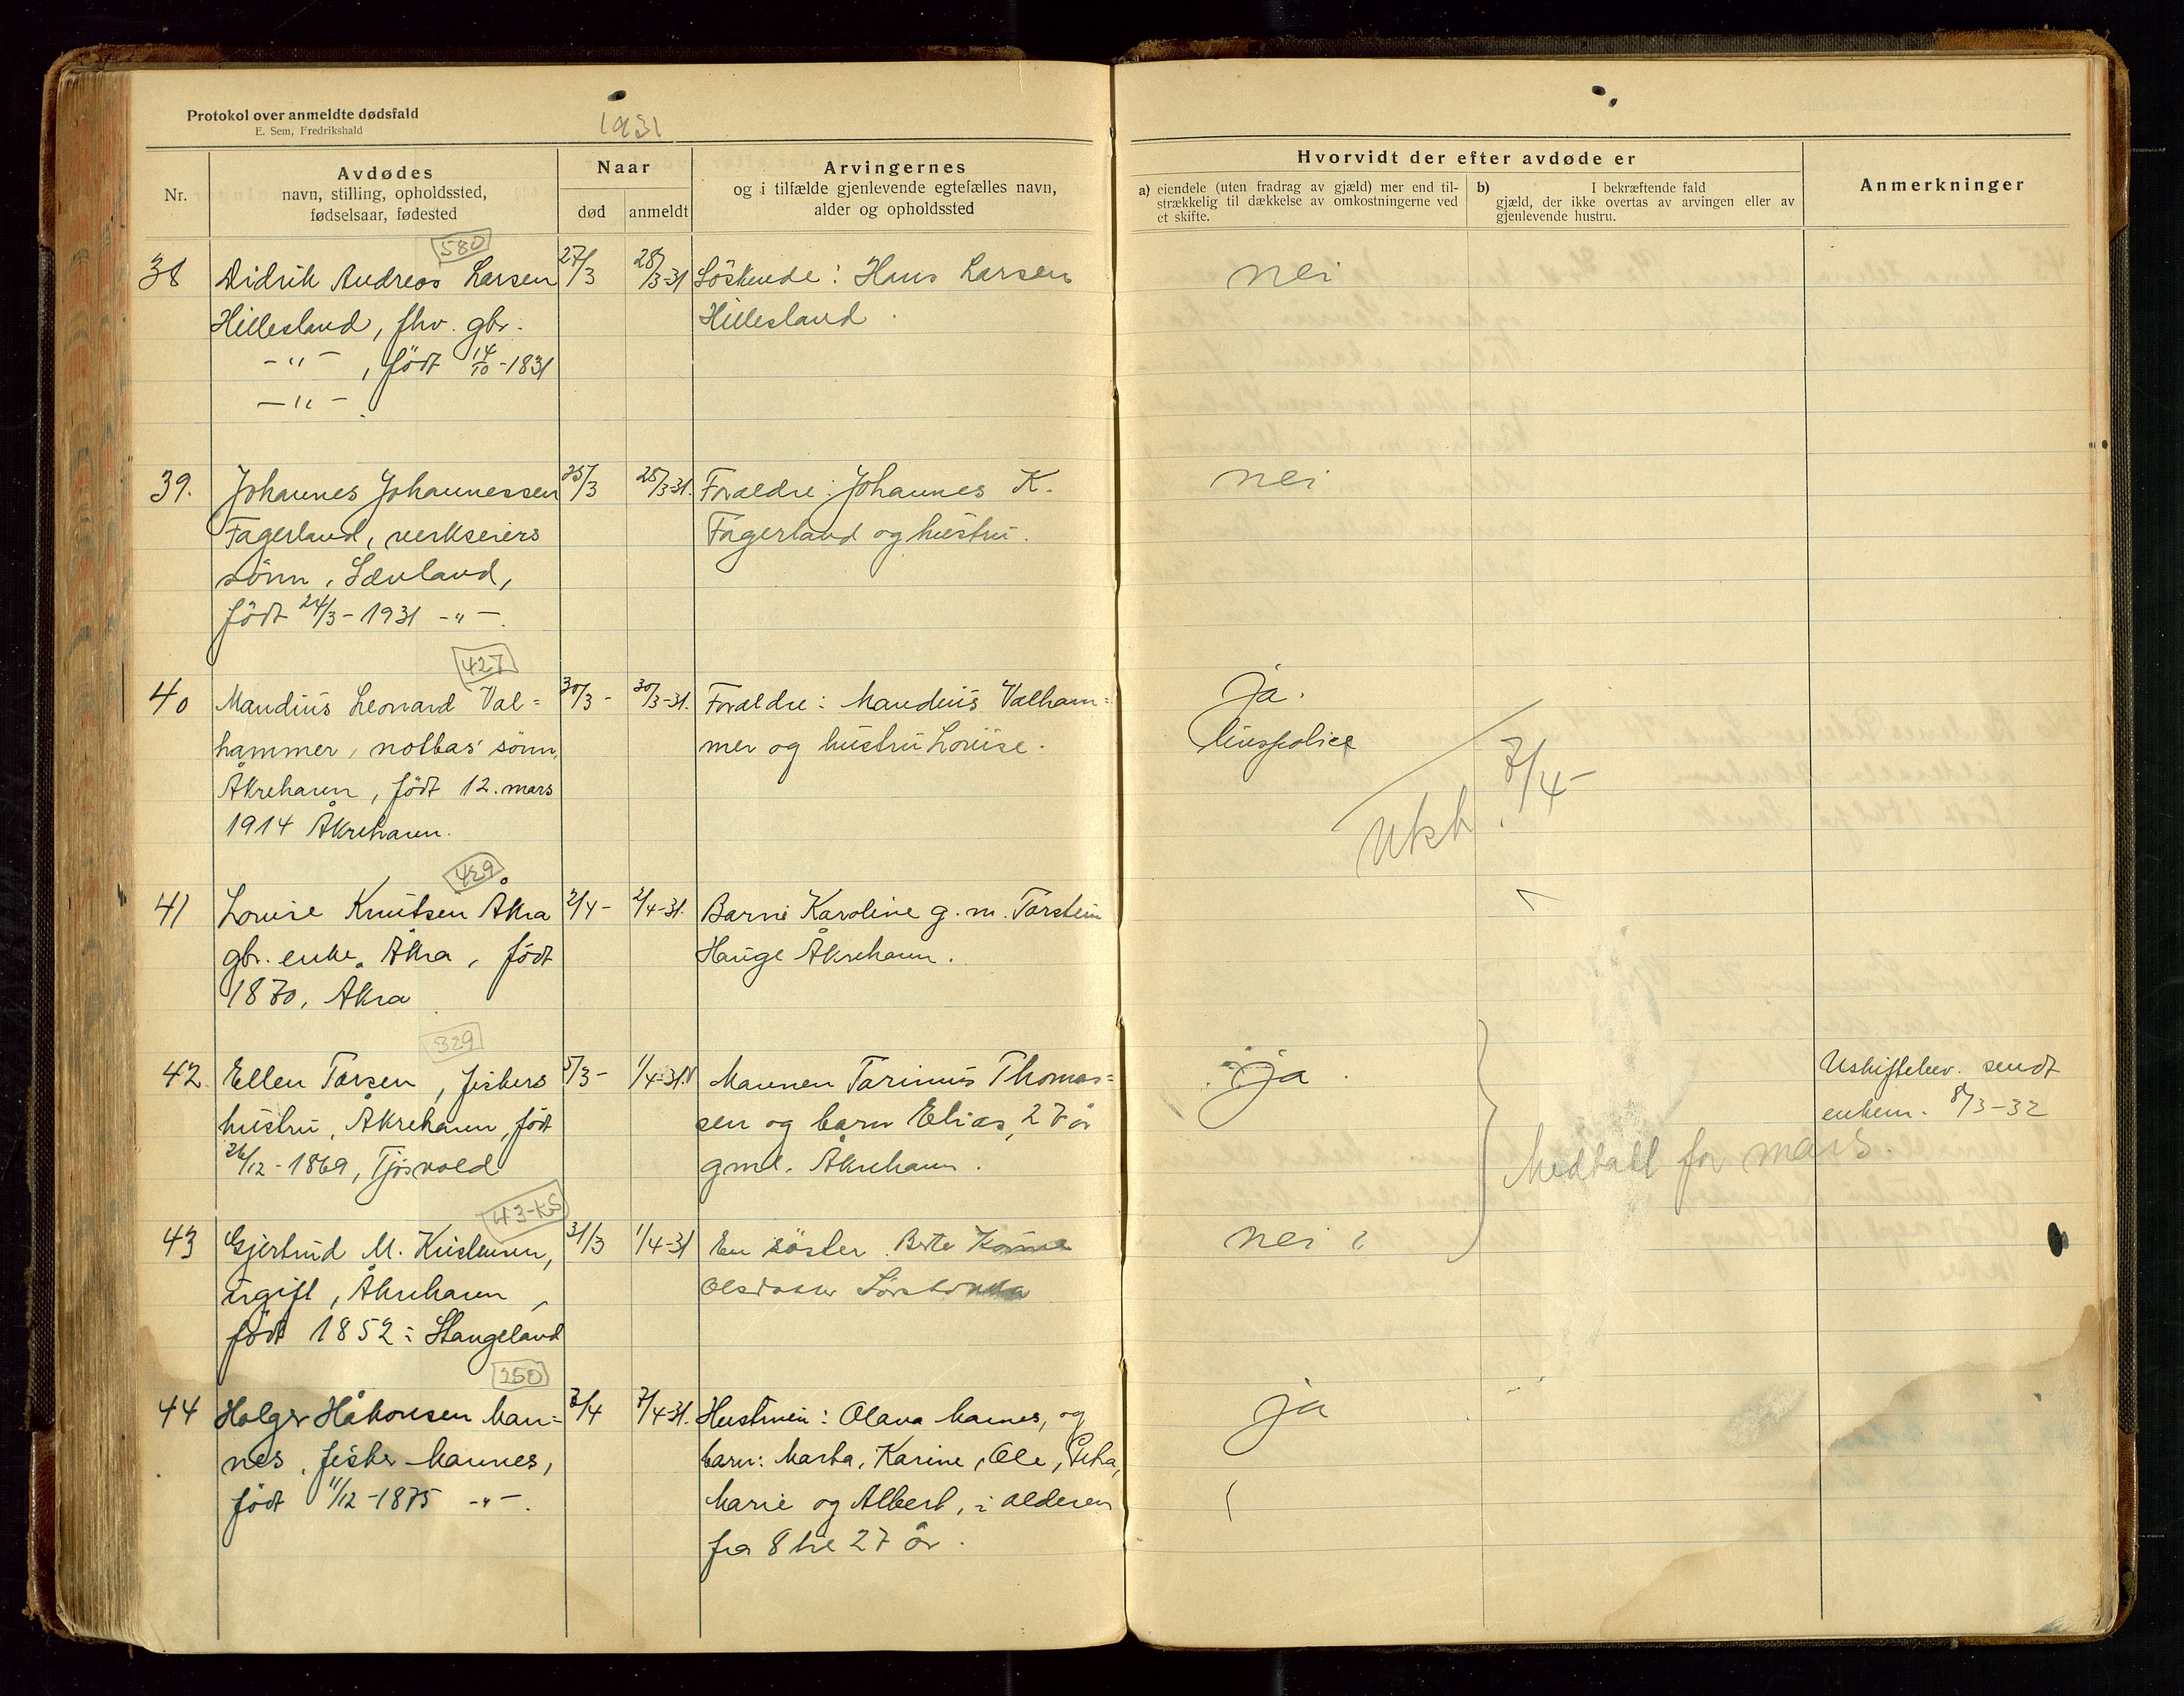 Protokol over anmeldte dødsfald
E. Sem, Fredrikshald
1931
Nr.
Avdødes
navn, stilling, opholdssted,
fødselsaar, fødested
Naar
død
anmeldt
Arvingernes
og i tilfælde gjenlevende egtefælles navn,
alder og opholdssted
Hvorvidt der efter avdøde er
a) eiendele (uten fradrag av gjæld) mer end til-
strækkelig til dækkelse av omkostningerne ved
et skifte.
b) I bekræftende fald
gjæld, der ikke overtas av arvingen eller av
gjenlevende hustru.
Anmerkninger
580
38 Didrik Andreas Larsen 27/3 28/3-31 Söskende: Hans Larsen nei
Hillesland, fhv. gbr. Hillesland.
-"- , födt 14/10-1831
-"-.
39. Johannes Johannessen 25/3 28/3-31. Foraeldre: Johannes K. nei
Fagerland, verkseiers Fagerland og hustru.
sönn, Sævland,
födt 24/3-1931 -"-.
427
40 Mandius Leonard Val= 30/3- 30/3-31. Foraeldre: Mandius Valham= ja.
hammer, notbas' sönn, mer og hustru Louise. livspolice
Åkrehavn, födt 12. mars 7/4-
1914 Åkrehavn. Ukh.
429
41 Louise Knutsen Åkra 2/4- 2/4-31. Barni Karoline g. m. Torstein
gbr. enke, Åkra, födt Hauge Åkrehavn.
1870, Åkra
329
42. Ellen Torsen, fiskers 5/3- 1/4-31. Mannen Tarinius Thomas= ja. Uskiftebev. sendt
hustru, Åkrehavn, födt sen og barn Elias, 27 år enkem. 8/3-32
26/12-1869, Tjösvold gml. Åkrehavn. Medtatt for mars.
43-KS
43 Gjertrud M. Kristensen, 31/3 1/4-31 En söster. Berte nei?
ugift, Åkrehavn, Olsdatter
födt 1852 i Stangeland
250
44 Holger Håkonsen Man= 3/4 7/4-31. Hustruen: Olava Mannes, og ja
nes, fisker Mannes, barn: Marta, Karine, Ole,
födt 11/12-1875 -"-. Marie og Albert, i alderen
fra 8 til 27 år.